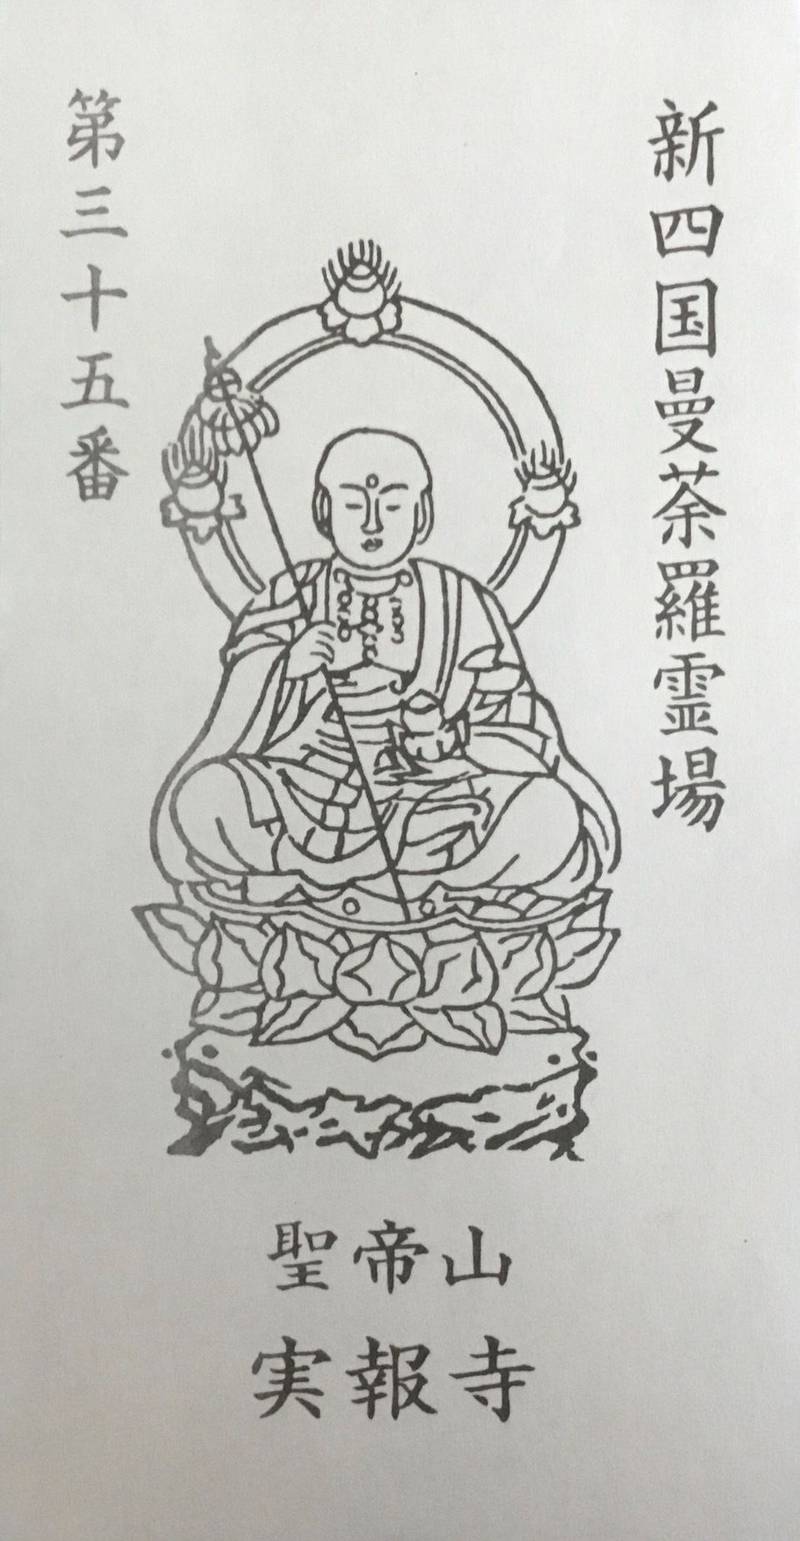 新四国曼荼羅霊場
第三十五番
聖帝山
実報寺